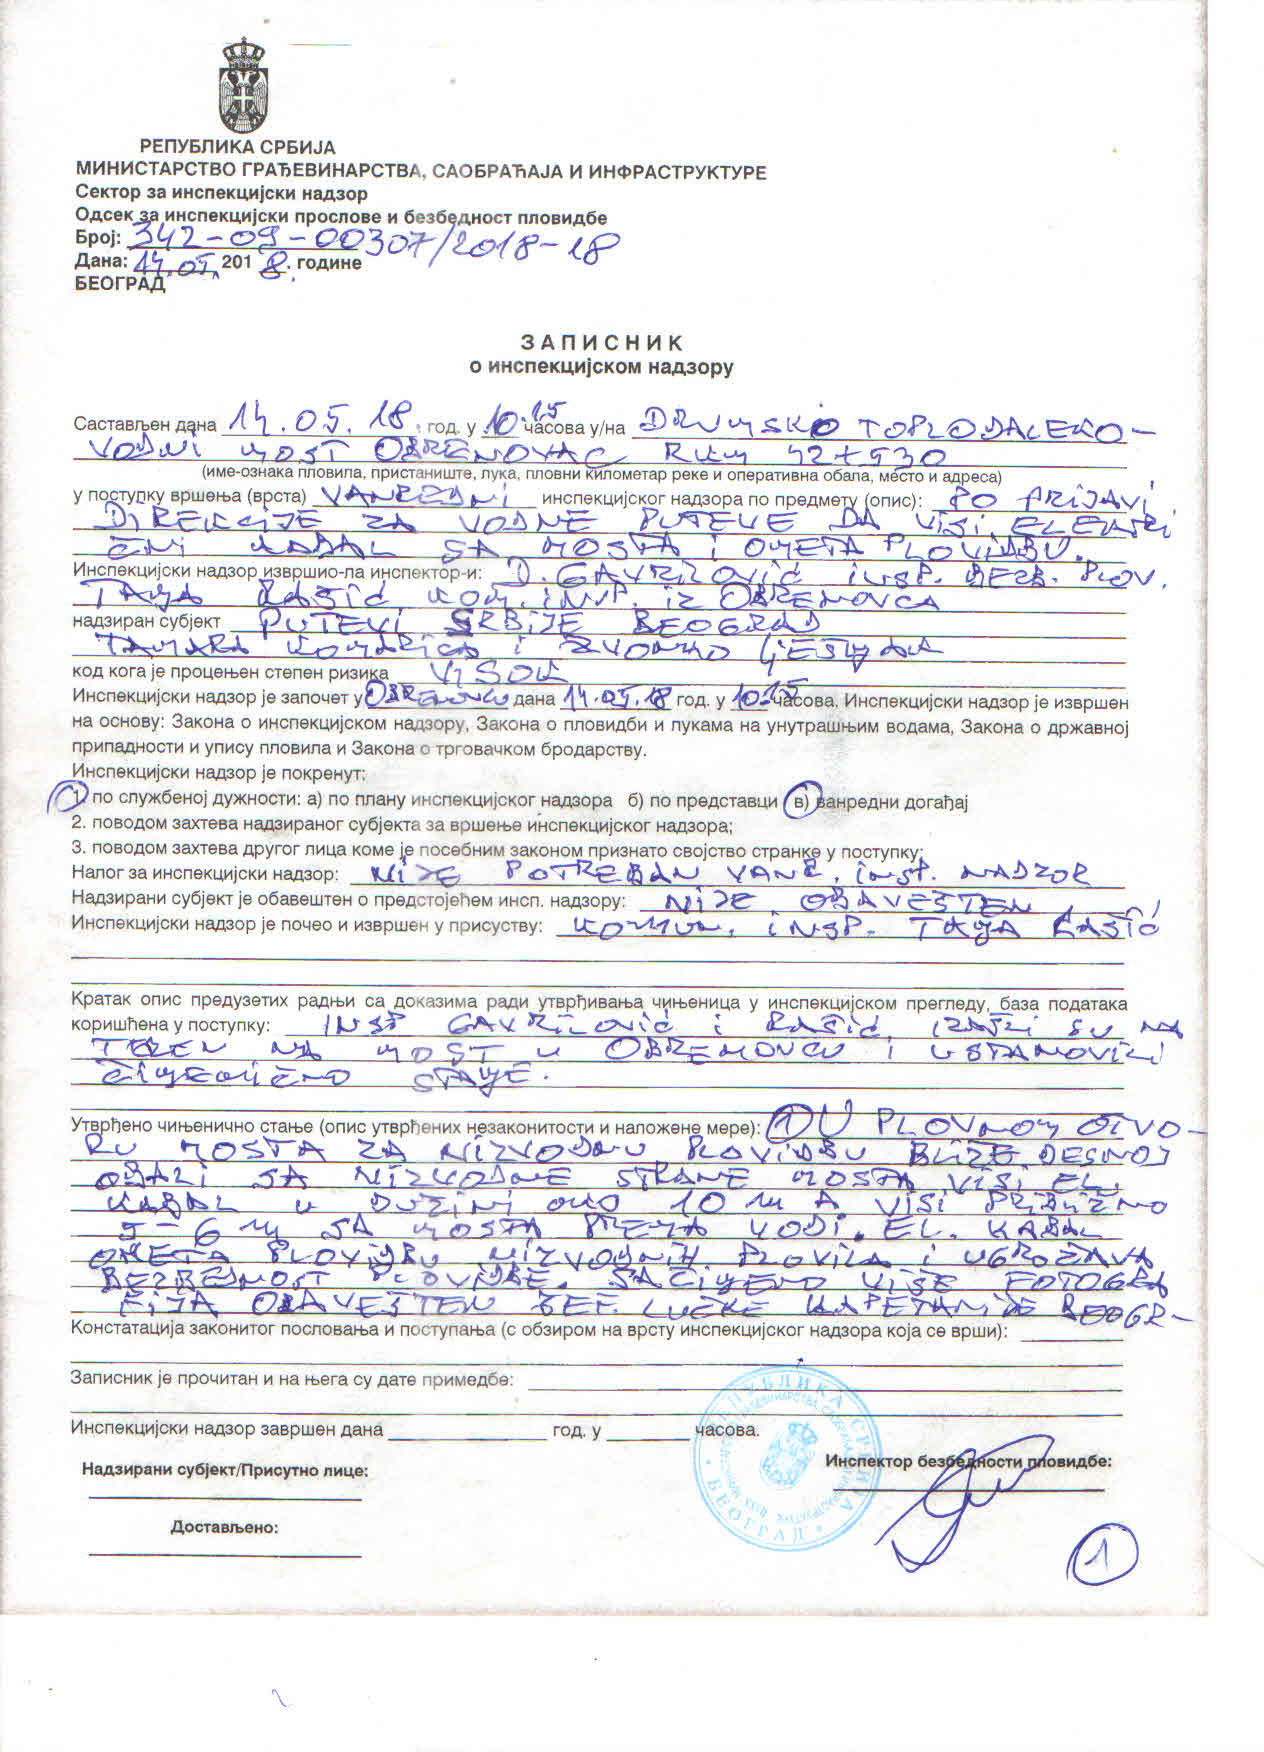 РЕПУБЛИКА СРБИЈА
МИНИСТАРСТВО ГРАЂЕВИНАРСТВА, САОБРАЋАЈА И ИНФРАСТРУКТУРЕ
Сектор за инспекцијски надзор
Одсек за инспекцијски прослове и безбедност пловидбе
Број: 342-09-00307/2018-18
Дана: 14.05. 2018. године
БЕОГРАД
З А П И С Н И К
о инспекцијском надзору
Састављен дана 14.05.18. год. у 10.15 часова у/на DRUMSKO TOPLODALEKO-
VODNI MOST OBRENOVAC RKM 42+530
(име-ознака пловила, пристаниште, лука, пловни километар реке и оперативна обала, место и адреса)
у поступку вршења (врста) VANREDNI инспекцијског надзора по предмету (опис): PO PRIJAVI
DIREKCIJE ZA VODNE PUTEVE DA VISI ELEKTRI
ČNI KABAL SA MOSTA I OMETA PLOVIDBU.
Инспекцијски надзор извршио-ла инспектор-и: D. GAVRILOVIĆ INSP. BEZB. PLOV.
TANJA RAŠIĆ KOM. INSP. IZ OBRENOVCA
надзиран субјект PUTEVI SRBIJE BEOGRAD
TAMARA I ZVONKO
код кога је процењен степен ризика VISOK
Инспекцијски надзор је започет у OBRENOVCU дана 14.05.18 год. у 10.15 часова. Инспекцијски надзор је извршен
на основу: Закона о инспекцијском надзору, Закона о пловидби и лукама на унутрашњим водама, Закона о државној
припадности и упису пловила и Закона о трговачком бродарству.
Инспекцијски надзор је покренут:
1. по службеној дужности: а) по плану инспекцијског надзора б) по представци в) ванредни догађај
2. поводом захтева надзираног субјекта за вршење инспекцијског надзора;
3. поводом захтева другог лица коме је посебним законом признато својство странке у поступку;
Налог за инспекцијски надзор: NIJE POTREBAN VANR. INSP. NADZOR
Надзирани субјект је обавештен о предстојећем инсп. надзору: NIJE OBAVEŠTEN
Инспекцијски надзор је почео и извршен у присуству: KOMUN. INSP. TANJA RAŠIĆ
Кратак опис предузетих радњи са доказима ради утврђивања чињеница у инспекцијском прегледу, база података
коришћена у поступку: INSP GAVRILOVIĆ I RAŠIĆ, IZAŠLI SU NA
TEREN NA MOST U OBRENOVCU I USTANOVILI
ČINJENIČNO STANJE.
Утврђено чињенично стање (опис утврђених незаконитости и наложене мере): 1) U PLOVNOM OTVO-
RU MOSTA ZA NIZVODNU PLOVIDBU BLIŽE DESNOJ
OBALI SA NIZVODNE STRANE MOSTA VISI EL.
KABAL U DUŽINI OKO 10 M A VISI PRIBLIŽNO
5-6 M SA MOSTA PREMA VODI. EL. KABAL
OMETA PLOVIDBU NIZVODNIH PLOVILA I UGROŽAVA
BEZBEDNOST PLOVIDBE. SAČINJENO VIŠE FOTOGRA
FIJA OBAVEŠTEN ŠEF LUČKE KAPETANIJE BEOGR-
Констатација законитог пословања и поступања (с обзиром на врсту инспекцијског надзора која се врши):
Записник је прочитан и на њега су дате примедбе:
Инспекцијски надзор завршен дана год. у часова.
Надзирани субјект/Присутно лице:
Инспектор безбедности пловидбе:
РЕПУБЛИКА СРБИЈА
БЕОГРАД
Достављено:
1